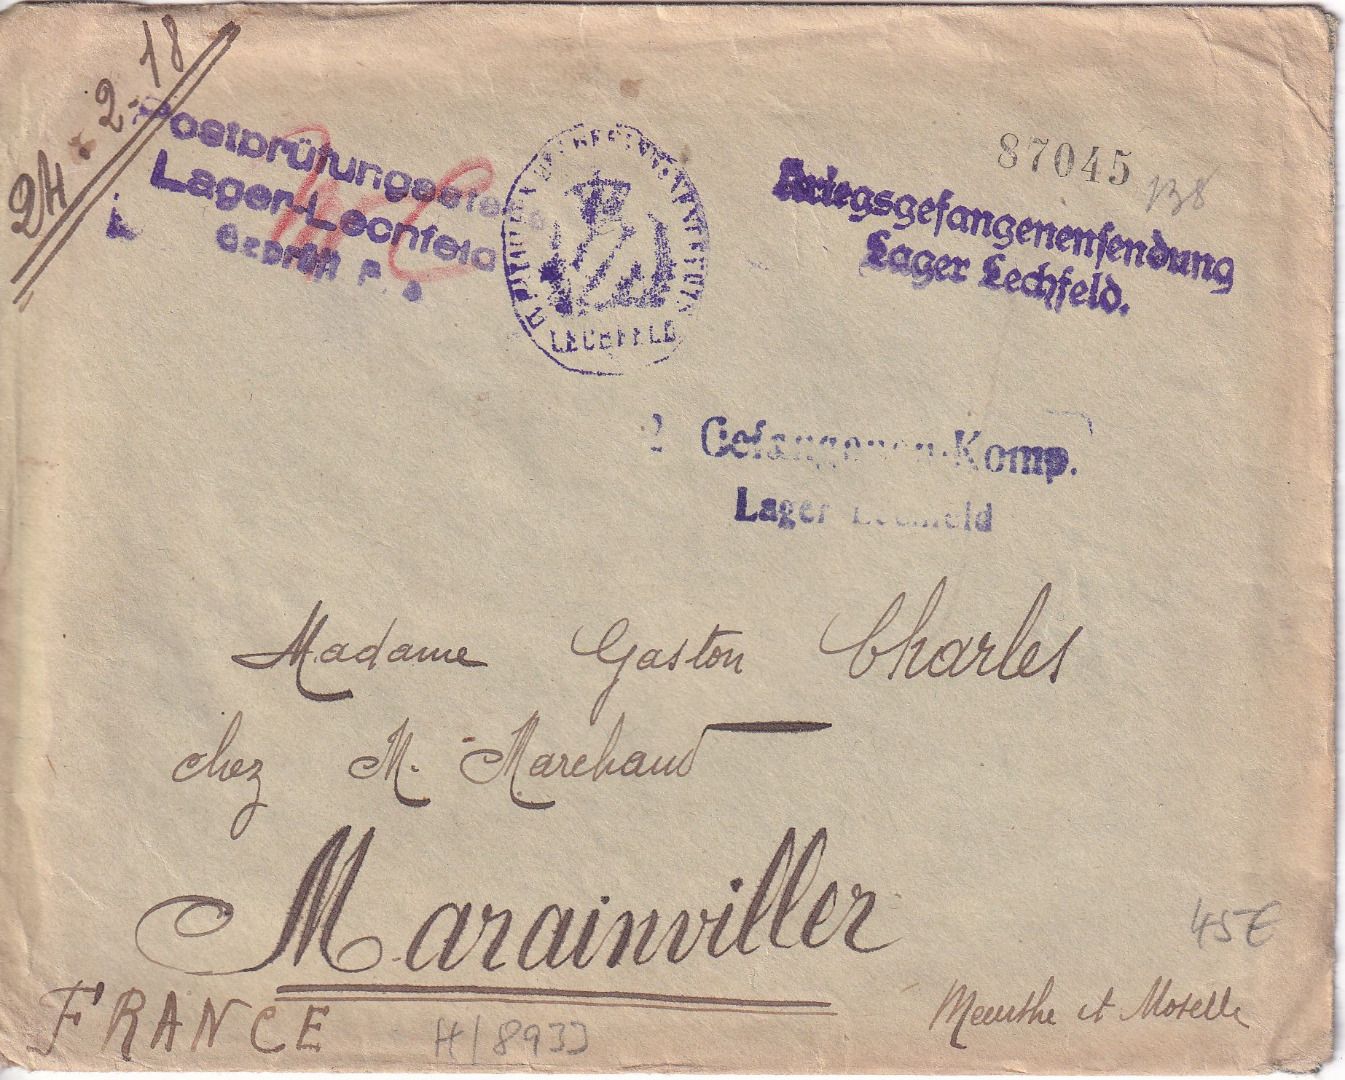 24.2.18
Postprüfungsstelle
Lager-Lechfeld
Geprüft
LECHFELD
87045
138
Kriegsgefangenensendung
Lager Lechfeld.
2 Gefangenen-Komp.
Lager Lechfeld
Madame Gaston Charles
chez M. Marchand
Marainviller
FRANCE
Meurthe et Moselle
45€